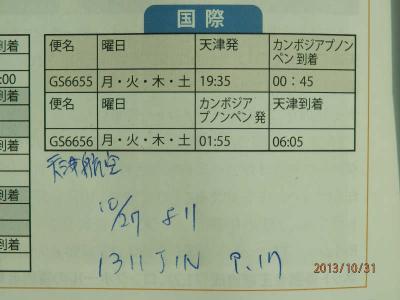 国際
到着
便名 曜日 天津発 カンボジアプノンペン 到着
:00
GS6655 月・火・木・土 19:35 00：45
到着
便名 曜日 カンボジアプノンペン 発 天津到着
到着
GS6656 月・火・木・土 01:55 06:05
天津航空
到着
10/27 より
到着
1311 JIN P.17
2013/10/31